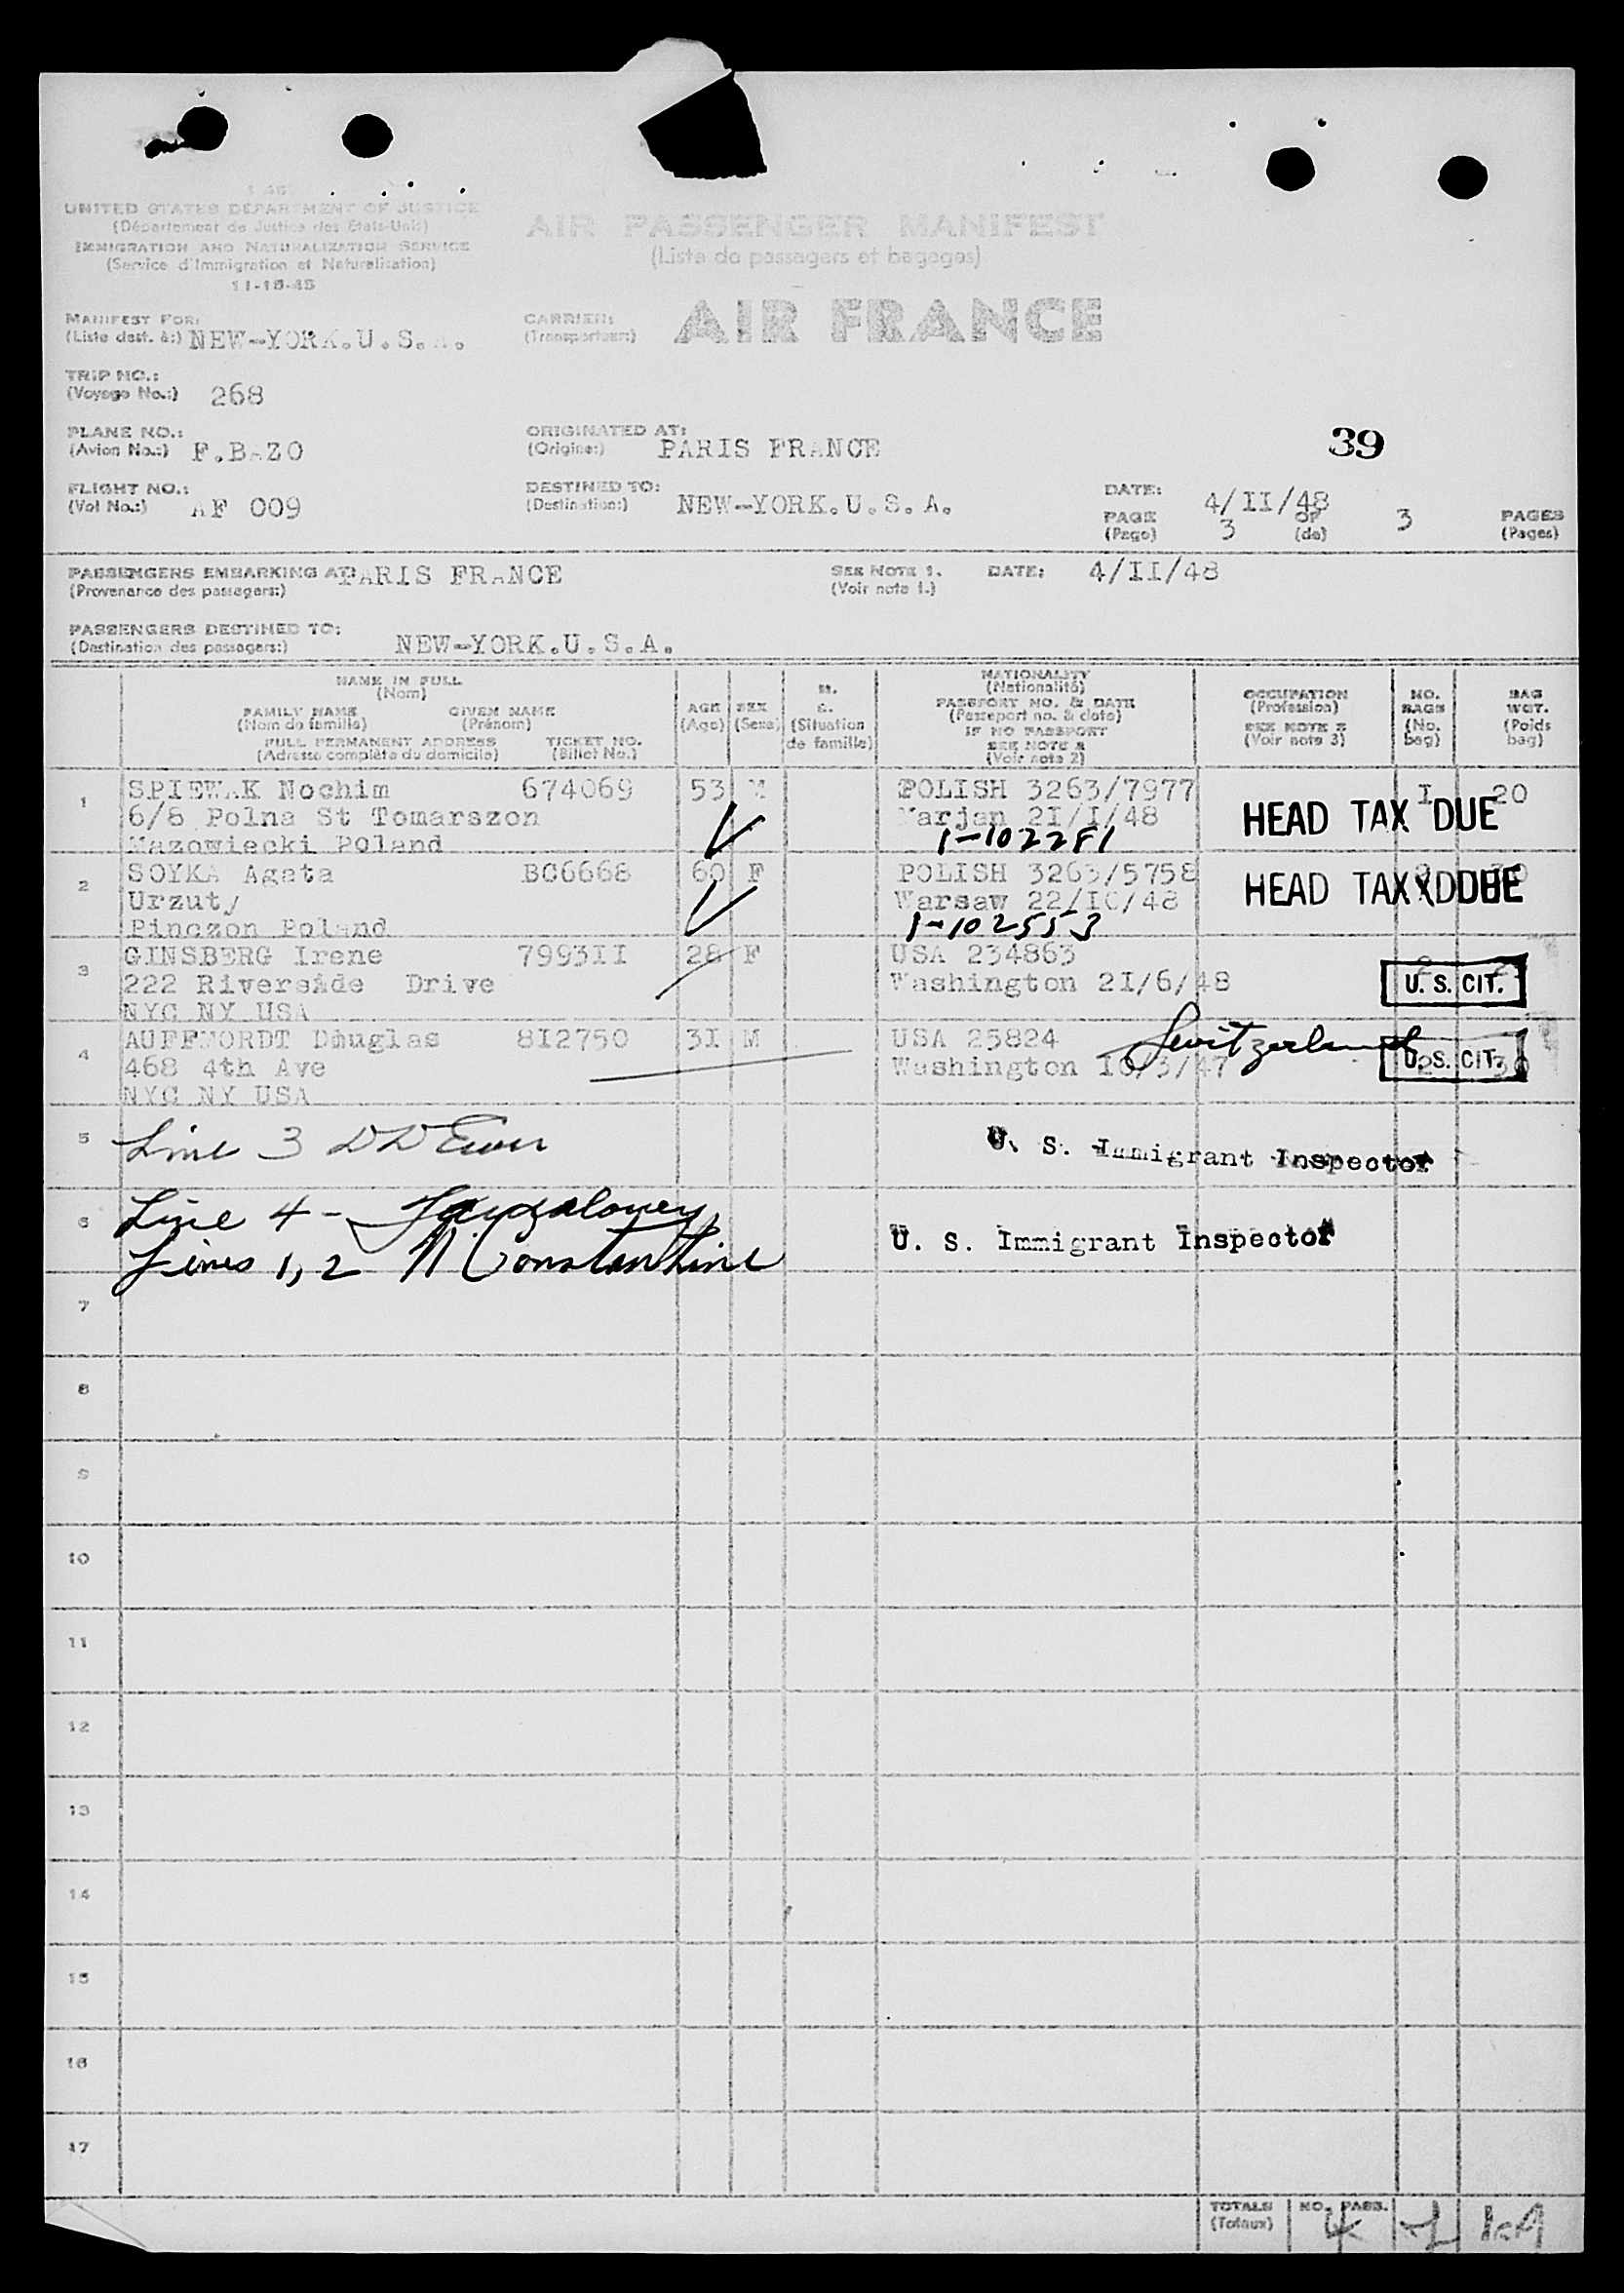 UNITED STATES DEPARTMENT OF JUSTICE
(Département de Justice des Etats-Unis)
IMMIGRATION AND NATURALIZATION SERVICE
(Service d'Immigration et Naturalisation)
11-15-45
AIR PASSENGER MANIFEST
(Liste de passagers et bagages)
MANIFEST FOR:
(Liste dest. à:) NEW-YORK.U.S.A.
CARRIER:
(Transporteur:) AIR FRANCE
TRIP NO.:
(Voyage No.:) 268
PLANE NO.:
(Avion No.:) F.BAZO
ORIGINATED AT:
(Origine:) PARIS FRANCE
39
FLIGHT NO.:
(Vol No.:) AF 009
DESTINED TO:
(Destination:) NEW-YORK.U.S.A.
DATE: 4/II/48
PAGE 3 OF 3 PAGES
(Page) (de) (Pages)
PASSENGERS EMBARKING AT: PARIS FRANCE
(Provenance des passagers:)
SEE NOTE 1. DATE: 4/II/48
(Voir note 1.)
PASSENGERS DESTINED TO:
(Destination des passagers:) NEW-YORK.U.S.A.
NAME IN FULL
(Nom)
FAMILY NAME GIVEN NAME
(Nom de famille) (Prénom)
FULL PERMANENT ADDRESS TICKET NO.
(Adresse complète du domicile) (Billet No.)
AGE
(Age)
SEX
(Sexe)
M.
S.
(Situation
de famille)
NATIONALITY
(Nationalité)
PASSPORT NO. & DATE
(Passeport no. & date)
IF NO PASSPORT
SEE NOTE 2
(Voir note 2)
OCCUPATION
(Profession)
SEE NOTE 3
(Voir note 3)
NO.
BAGS
(No.
bag)
BAG
WGT.
(Poids
bag)
1 SPIEWAK Nochim 674069 53 M POLISH 3263/7977 I 20
6/8 Polna St Tomarszon Marjan 2I/I/48 HEAD TAX DUE
Mazowiecki Poland 1-102281
2 SOYKA Agata BC6668 60 F POLISH 3263/5758
Urzuty Warsaw 22/IC/48 HEAD TAX DUE
Pinczon Poland 1-102553
3 GINSBERG Irene 7993II 28 F USA 234863
222 Riverside Drive Washington 2I/6/48 U. S. CIT.
NYC NY USA
4 AUFFMORDT Douglas 8I2750 3I M USA 25824 Switzerland
468 4th Ave Washington I0/3/47 U. S. CIT.
NYC NY USA
5 Line 3 U. S. Immigrant Inspector
6 Line 4 - U. S. Immigrant Inspector
Lines 1, 2 N Constantine
7
8
9
10
11
12
13
14
15
16
17
TOTALS NO. PASS.
(Totaux) 4